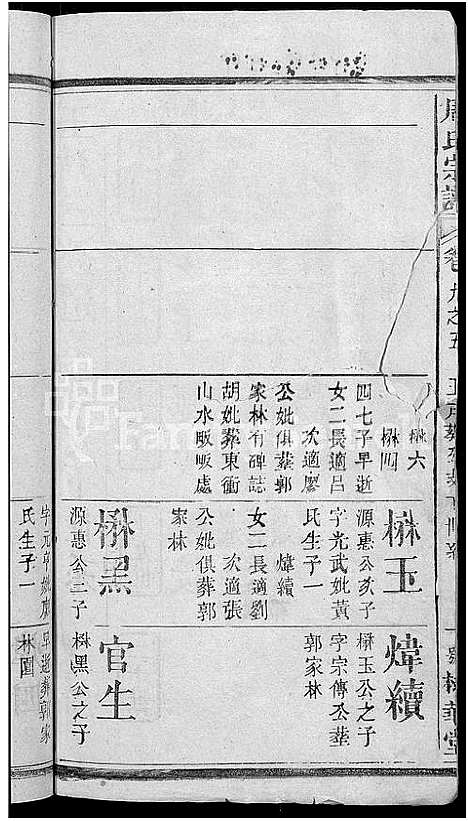 周氏宗譜
卷九之五
楙六
楙四
四七子早逝
女二長適呂
次適廖
公妣俱葬郭
家林有碑誌
胡妣葬東衝
山水畈畈處
楙玉
源惠公亥子
字光武妣黃
氏生子一
煒續
女二長適劉
次適張
公妣俱葬郭
家林
楙黑
源惠公三子
氏生子一
煒續
楙玉公之子
字宗傳公葬
郭家林
官生
楙黑公之子
早逝葬郭家
林園